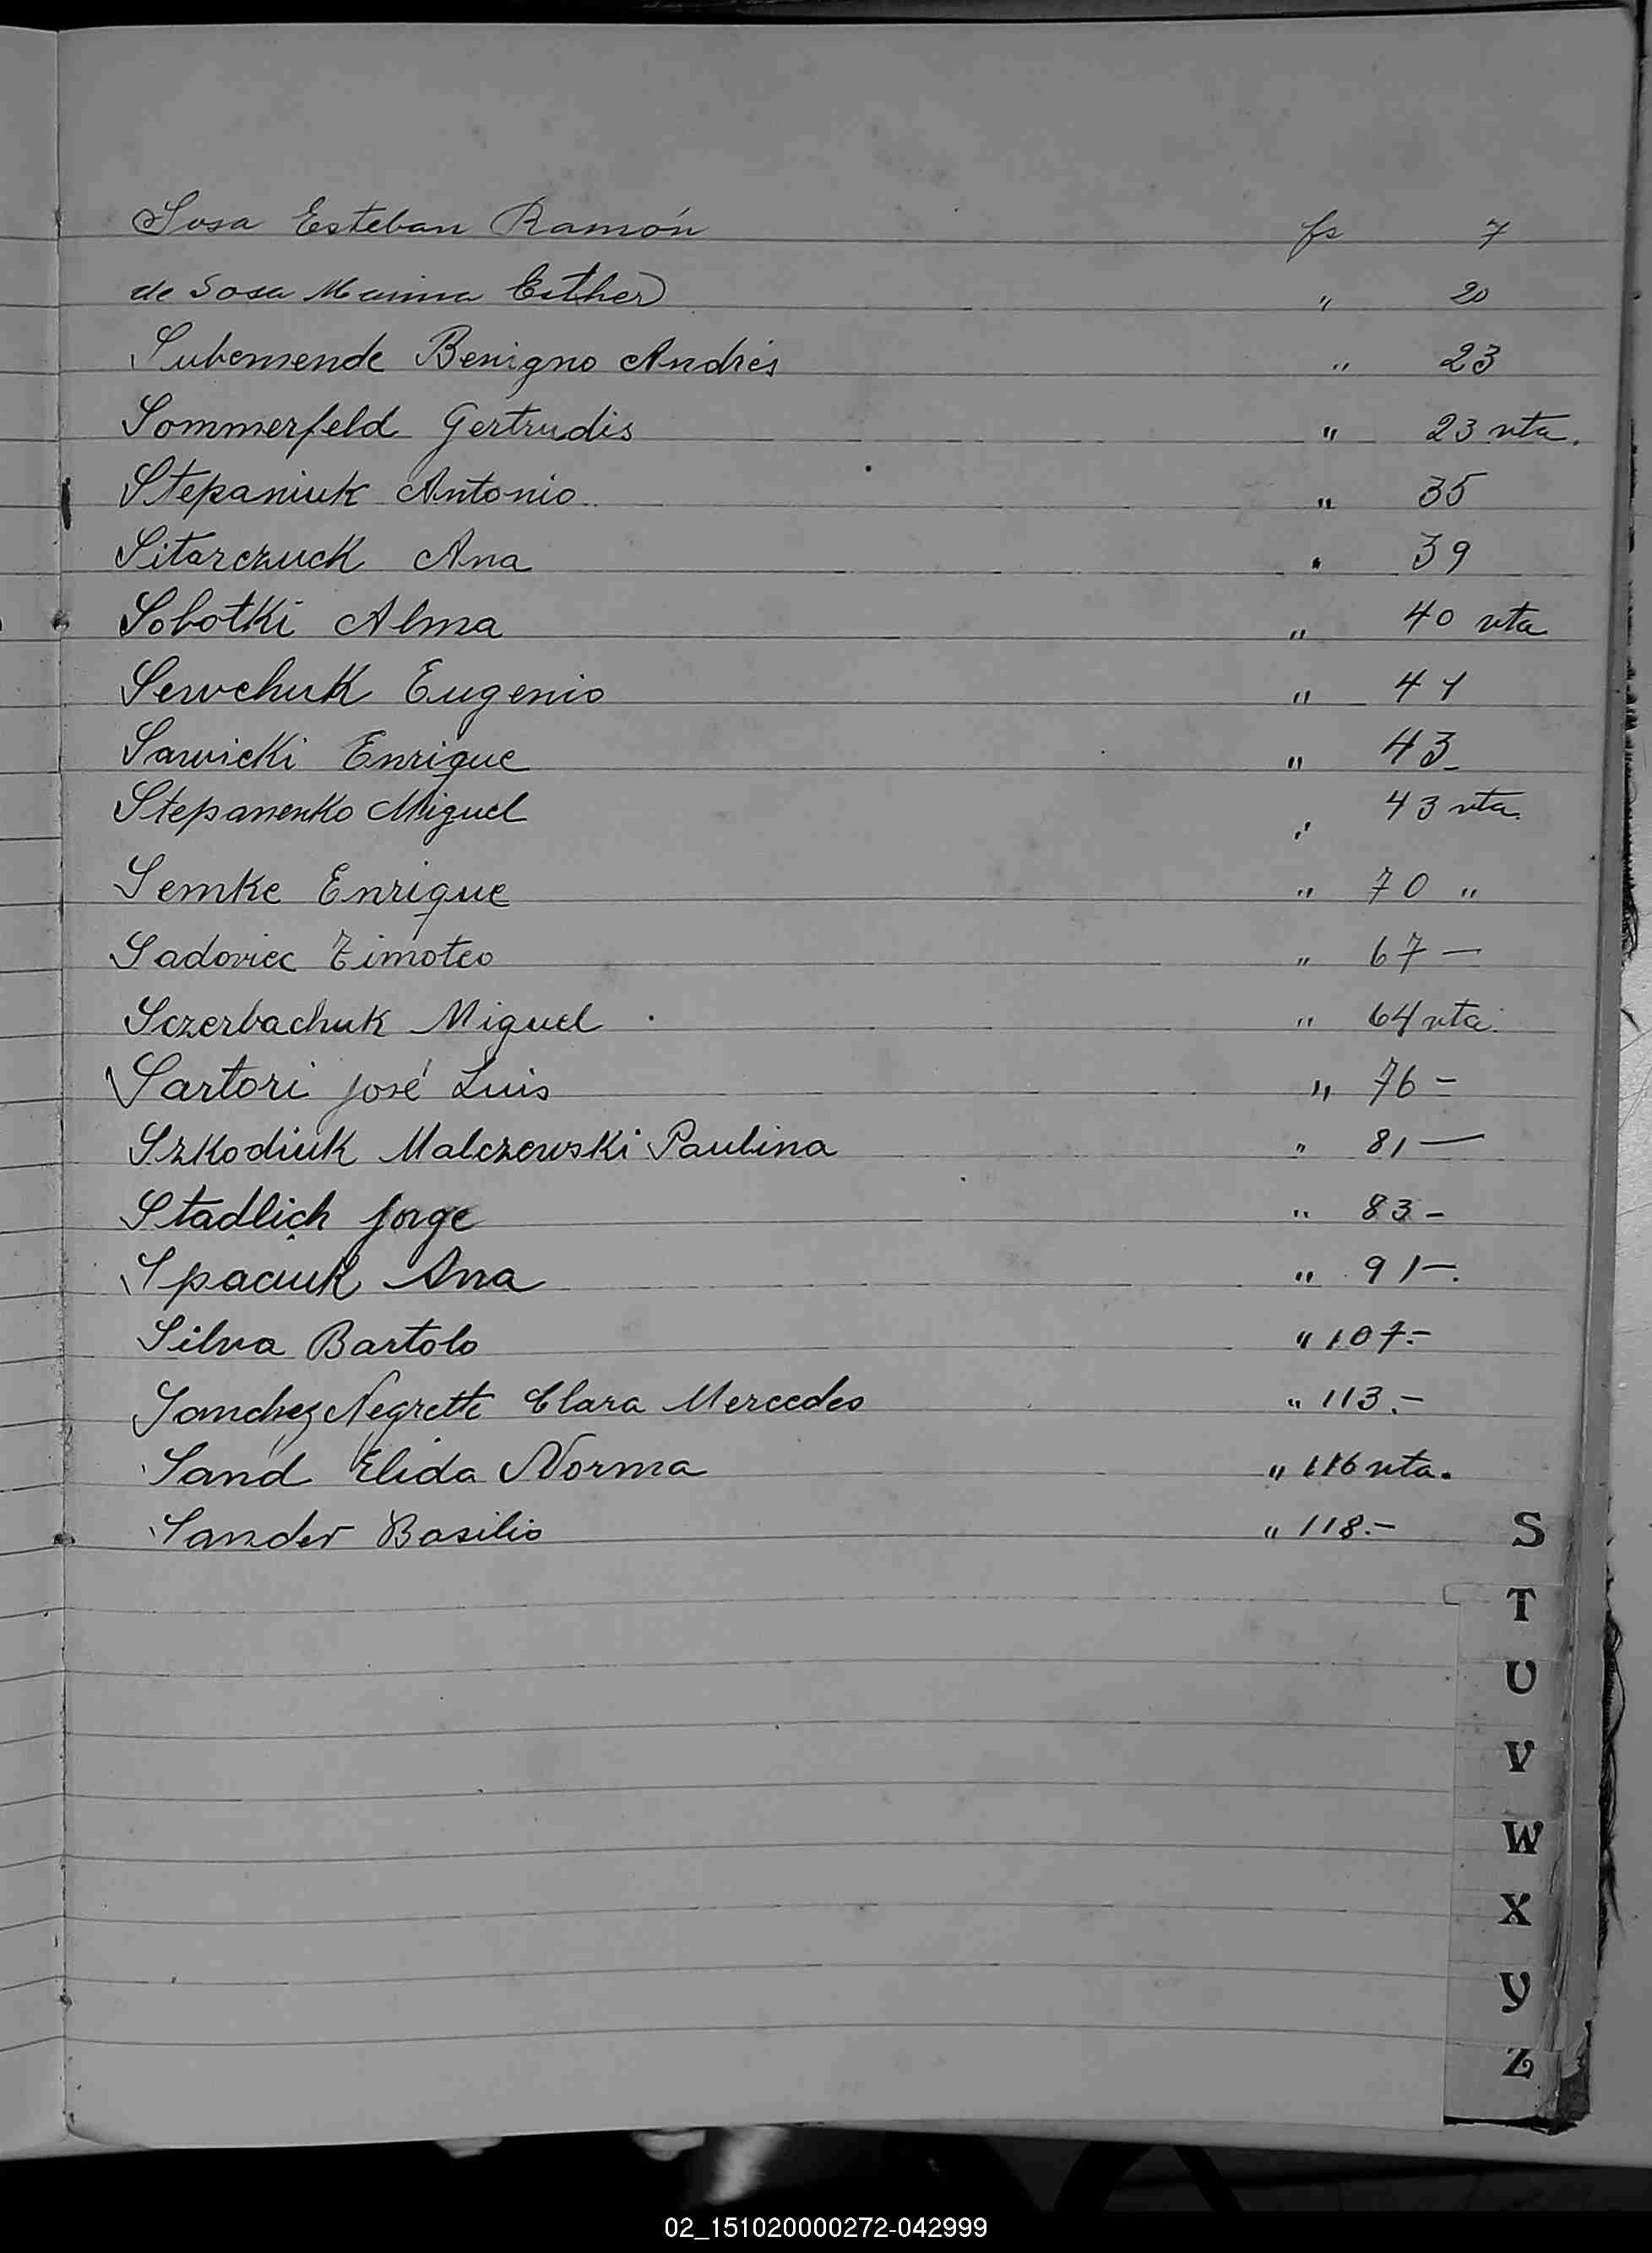 Sosa Esteban Ramón fs 7
de Sosa Marina Esther " 20
Subemende Benigno Andrés " 23
Sommerfeld Gertrudis " 23 vta.
Stepaniuk Antonio " 35
Sitarczuck Ana " 39
Sobotki Alma " 40 vta
Sewchuk Eugenio " 41
Sawicki Enrique " 43
Stepanenko Miguel " 43 vta.
Semke Enrique " 70 "
Sadoviec Timoteo " 67 —
Sczerbachuk Miguel " 64 vta.
Sartori José Luis " 76 -
Szkodiuk Malczewski Paulina " 81 —
Stadlich Jorge " 83 -
Spaciuk Ana " 91 -.
Silva Bartolo " 107.-
Sanchez Negrette Clara Mercedes " 113.-
Sand Elida Norma " 116 vta.
Sander Basilio " 118.-
S
T
U
V
W
X
Y
Z
02_151020000272-042999